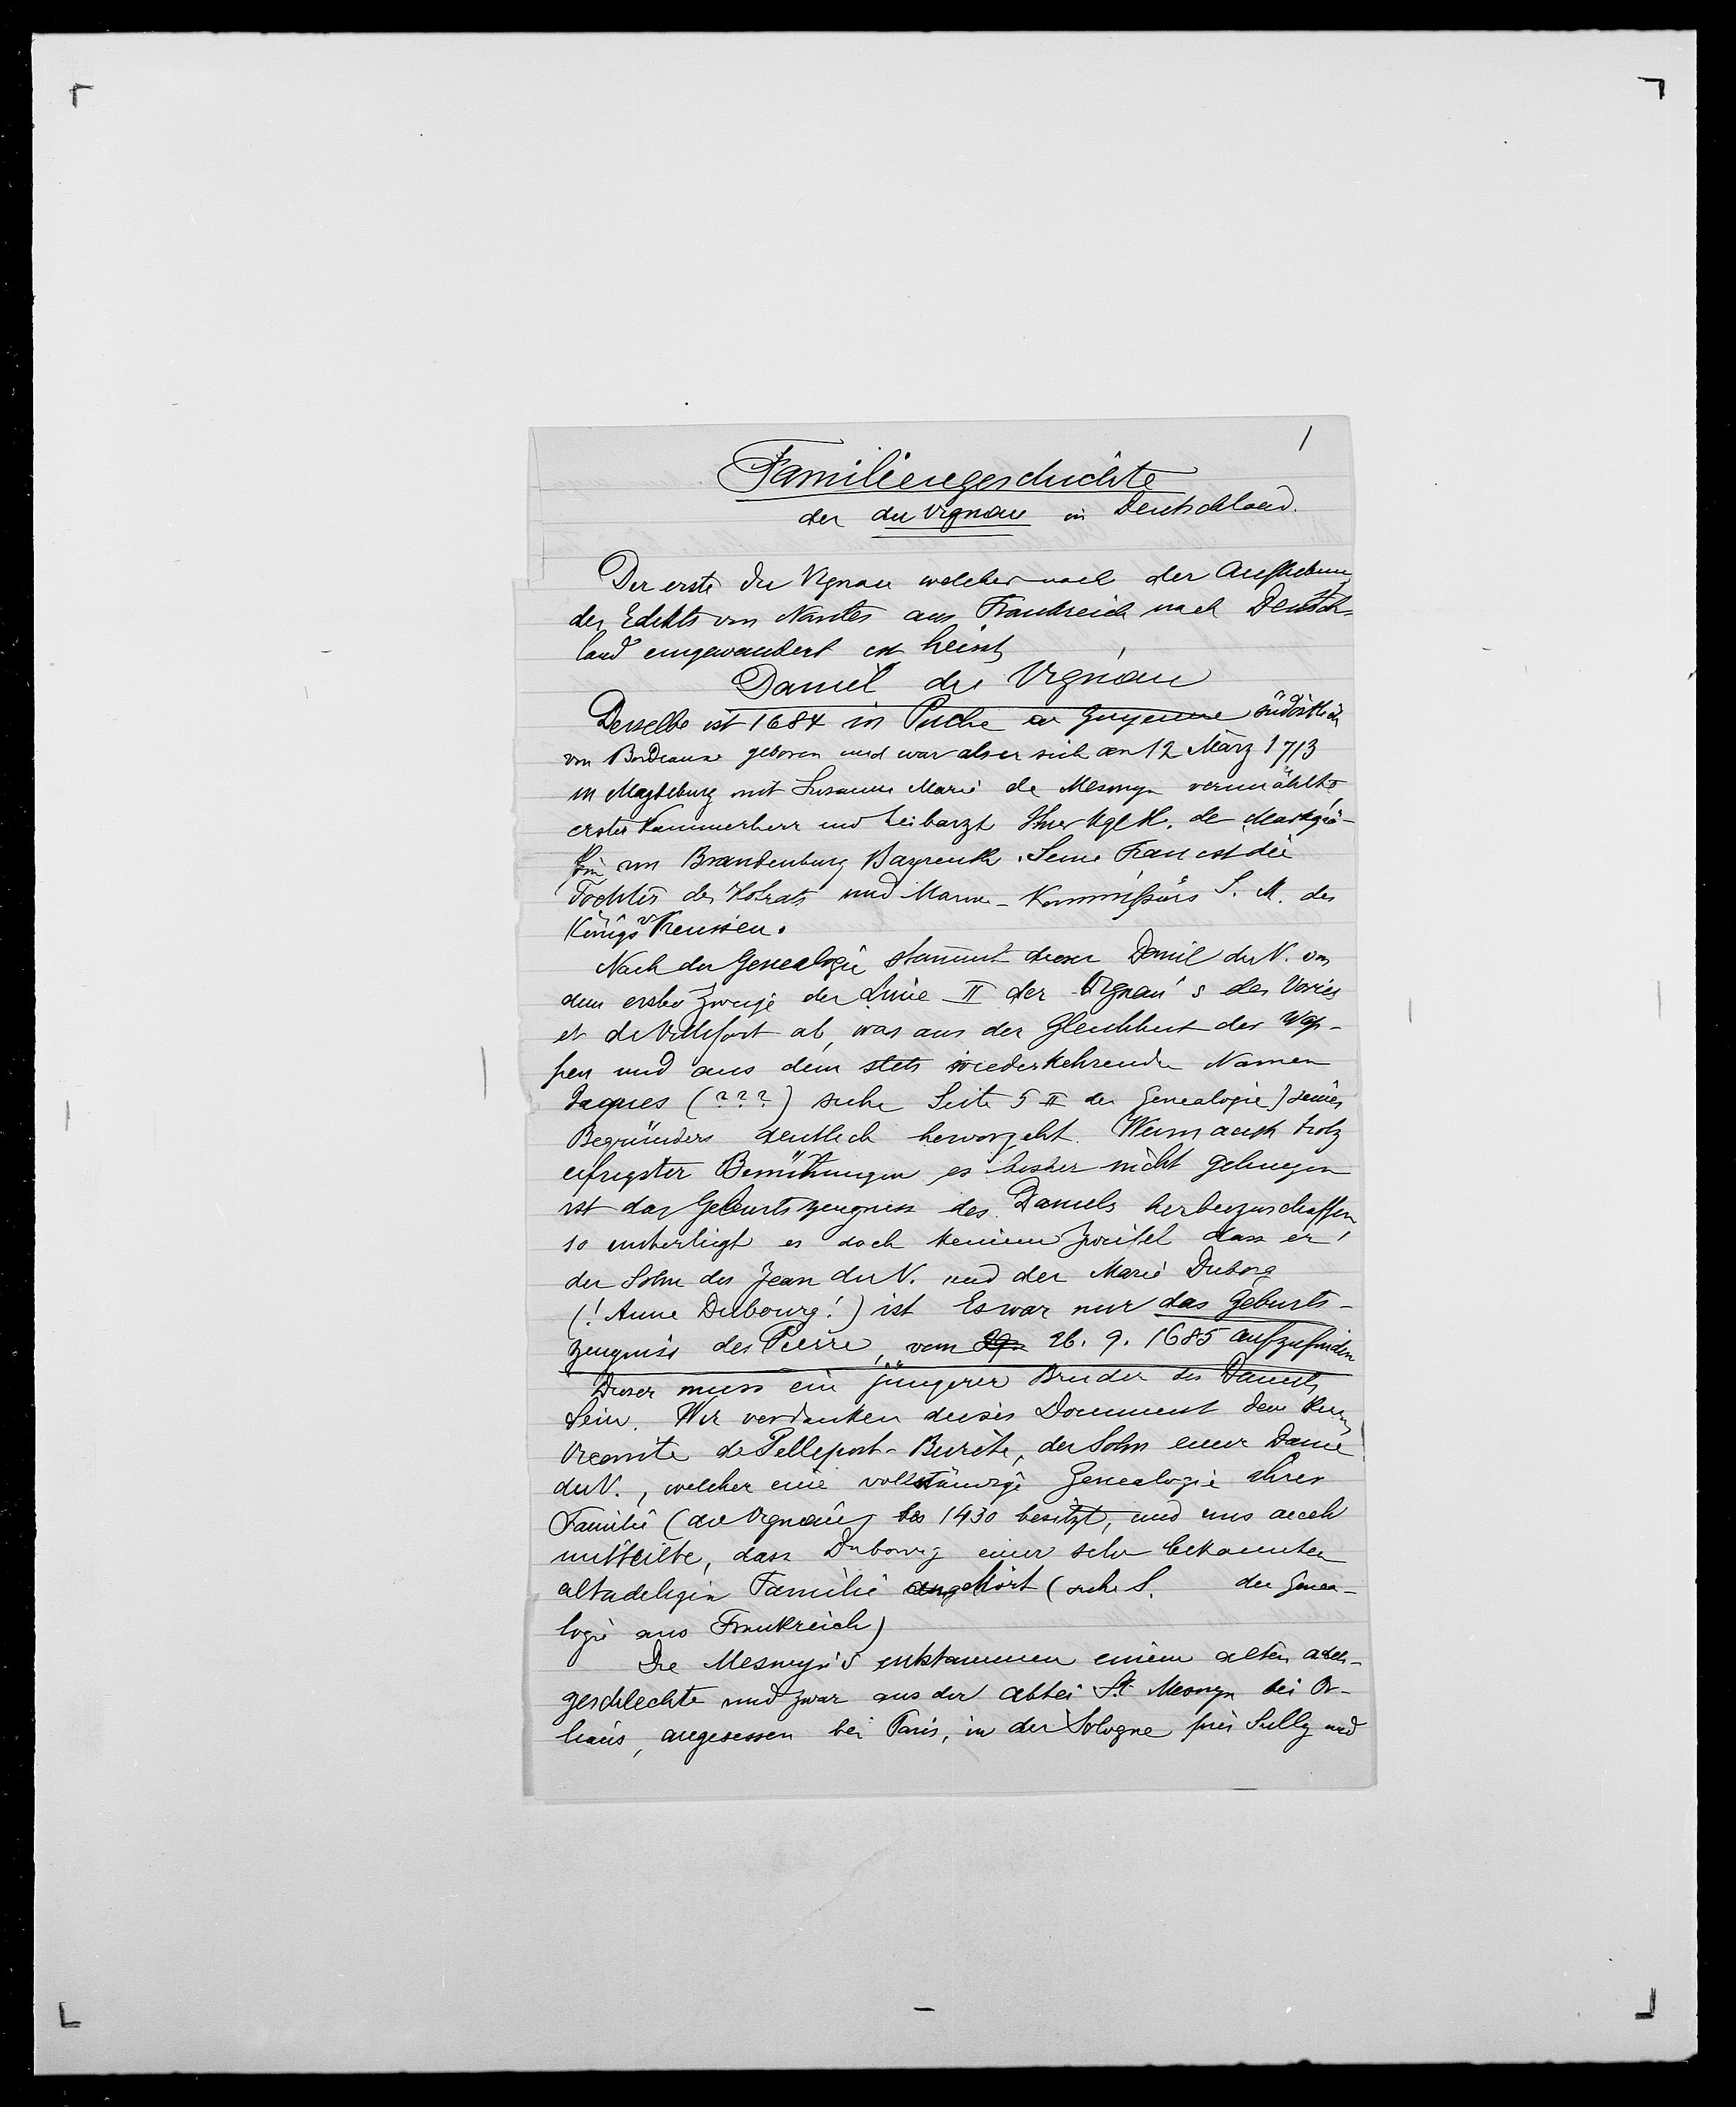 1
Familiengeschichte
der du Vignau in Deutschland.
Der erste du Vignau welcher nach der Aufhebung
des Edikts von Nantes aus Frankreich nach Deutsch-
land eingewandert ist heisst
Daniel du Vignau
Derselbe ist 1684 in Puche en Guyenne südöstlich
von Bordeaux geboren und war als er sich am 12 März 1713
in Magdeburg mit Susanne Marie de Mesmyn vermählte
erster Kammerherr und Leibarzt Ihrer Kgl H. de Markgrä-
fin von Brandenburg Bayreuth. Seine Frau ist die
Tochter des Hofrats und Marine-Kommissärs S. M. des
Königs v Preussen.
Nach der Genealogie stammt dieser Daniel du V. von
dem ersten Zweige der Linie II der Vignau's des Vories
et de Villefort ab, was aus der Gleichheit des Wap-
pen und aus dem stets wiederkehrenden Namen
Jaques (???) siehe Seite 5 II der Genealogie) seines
Begründers deutlich hervorgeht. Wenn auch trotz
eifrigster Bemühungen es bisher nicht gelungen
ist das Geburtszeugniss des Daniels herbeizuschaffen,
so unterliegt es doch keinem Zweifel dass er
der Sohn des Jean du V. und der Marie Duborg
(! Anne Dubourg!) ist Es war nur das Geburts-
zeugniss des Pierre, vom 26. 9. 1685 aufzufinden
Dieser muss ein jüngerer Bruder des Daniels
sein. Wir verdanken dieses Document dem Herrn
Vicomte de Pellepont-Burète, der Sohn einer Dame
du V., welcher eine vollständige Genealogie ihrer
Familie (du Vignau) bis 1430 besitzt, und uns auch
mitteilte, dass Dubourg einer sehr bekannten
altadeligen Familie angehört (siehe S. der Genea-
logie aus Frankreich)
Die Mesmyn's entstammen einem alten Adels-
geschlechte und zwar aus der Abtei St. Mesmyn bei Or-
leans, angesessen bei Paris, in der Sologne près Sully und